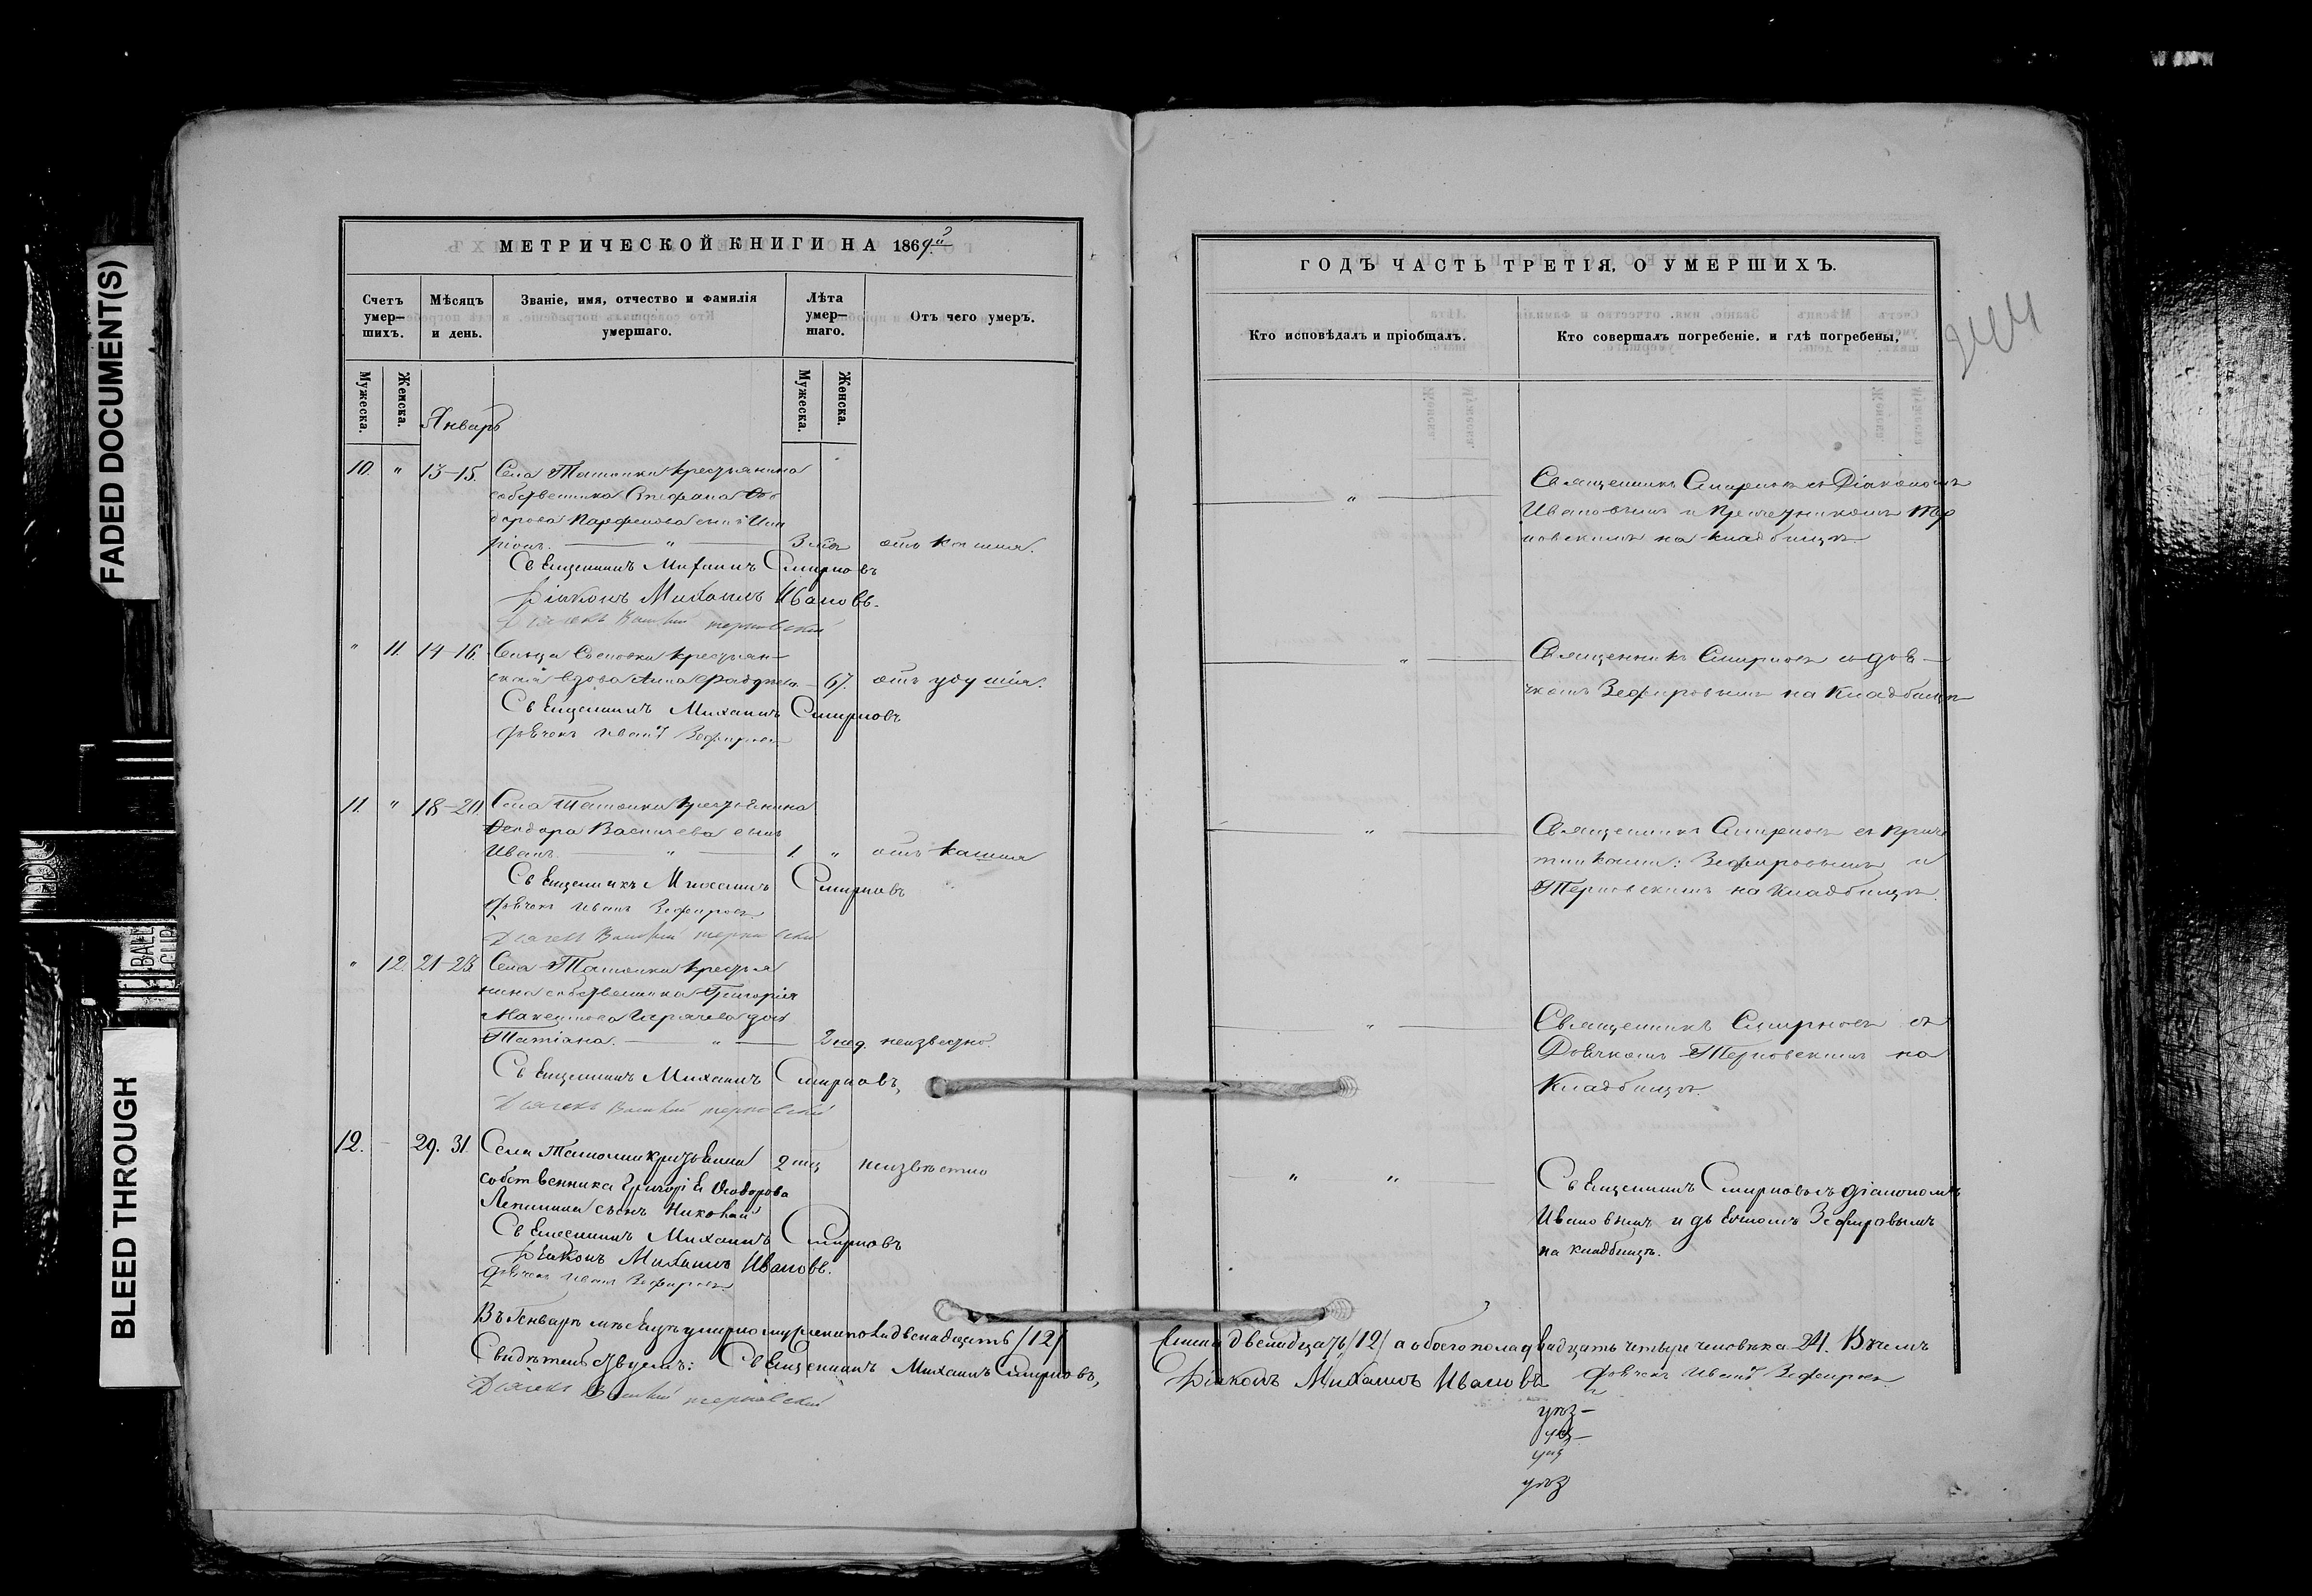 FADED DOCUMENT(S)
BLEED THROUGH
BALL
CLIP
МЕТРИЧЕСКОЙ КНИГИ НА 1869й
Счетъ умер–шихъ.
Мѣсяцъ и день.
Званіе, имя, отчество и фамилія умершаго.
Лѣта умер–шаго.
Отъ чего умеръ.
Мужеска.
Женска.
Январь
Мужеска.
Женска.
10. " 13–15. Села Ташолки крестьянина
собственника Стефана Ѳео
дорова Парфенова сынъ Ила
ріонъ. — " — 3 отъ кашля.
Священникъ Михаилъ Смирновъ
Діаконъ Михаилъ Ивановъ.
Дьячекъ Василій Терновскій
" 11. 14–16. Сельца Сосновки крестьян–
ская вдова Анна — 67. отъ удушія.
Священникъ Михаилъ Смирновъ
Дьячекъ Иванъ Зефировъ
11. " 18–20. Села Ташолки крестьянина
Ѳеодора Васильева сынъ
Иванъ. — " — 1. " отъ кашля
Священникъ Михаилъ Смирновъ
Дьячекъ Иванъ Зефировъ.
Дьячекъ Василій Терновскій
" 12. 21–23 Села Ташолки крестья
нина собственника Григорія
Максимова дочь
Татіана. — " — 2 нед. неизвестно.
Священникъ Михаилъ Смирновъ,
Дьячекъ Василій Терновскій
12. – 29. 31 Села Ташолки 2 неизвѣстно
собственника Григорія Ѳеодорова
сынъ Николай
Священникъ Михаилъ Смирновъ
Діаконъ Михаилъ Ивановъ.
Дьячекъ Иванъ Зефировъ
Въ Январѣ мѣсяцѣ умерло мужеска пола двенадцать /12/
Свидѣтельствуемъ: Священникъ Михаилъ Смирновъ,
Дьячекъ Василій Терновскій
ГОДЪ ЧАСТЬ ТРЕТІЯ, О УМЕРШИХЪ.
Кто исповѣдалъ и пріобщалъ.
Кто совершалъ погребеніе. и гдѣ погребены,
" Священникъ Смирновъ съ Діакономъ
Ивановымъ и Причетникомъ Тер
новскимъ на кладбищѣ.
" Священникъ Смирновъ съ дьяч–
комъ Зефировымъ на Кладбищѣ
" Священникъ Смирновъ съ Приче
тниками: Зефировымъ и
Терновскимъ на Кладбищѣ.
" Священникъ Смирновъ съ
Дьячкомъ Терновскимъ на
Кладбищѣ.
" " Священникъ Смирновъ съ діакономъ
Ивановымъ и дьячкомъ Зефировымъ
на кладбищѣ.
двенадцать /12/ а обоего пола двадцать четыре человѣка 24. Въ чемъ
Діаконъ Михаилъ Ивановъ Дьячекъ Иванъ Зефировъ